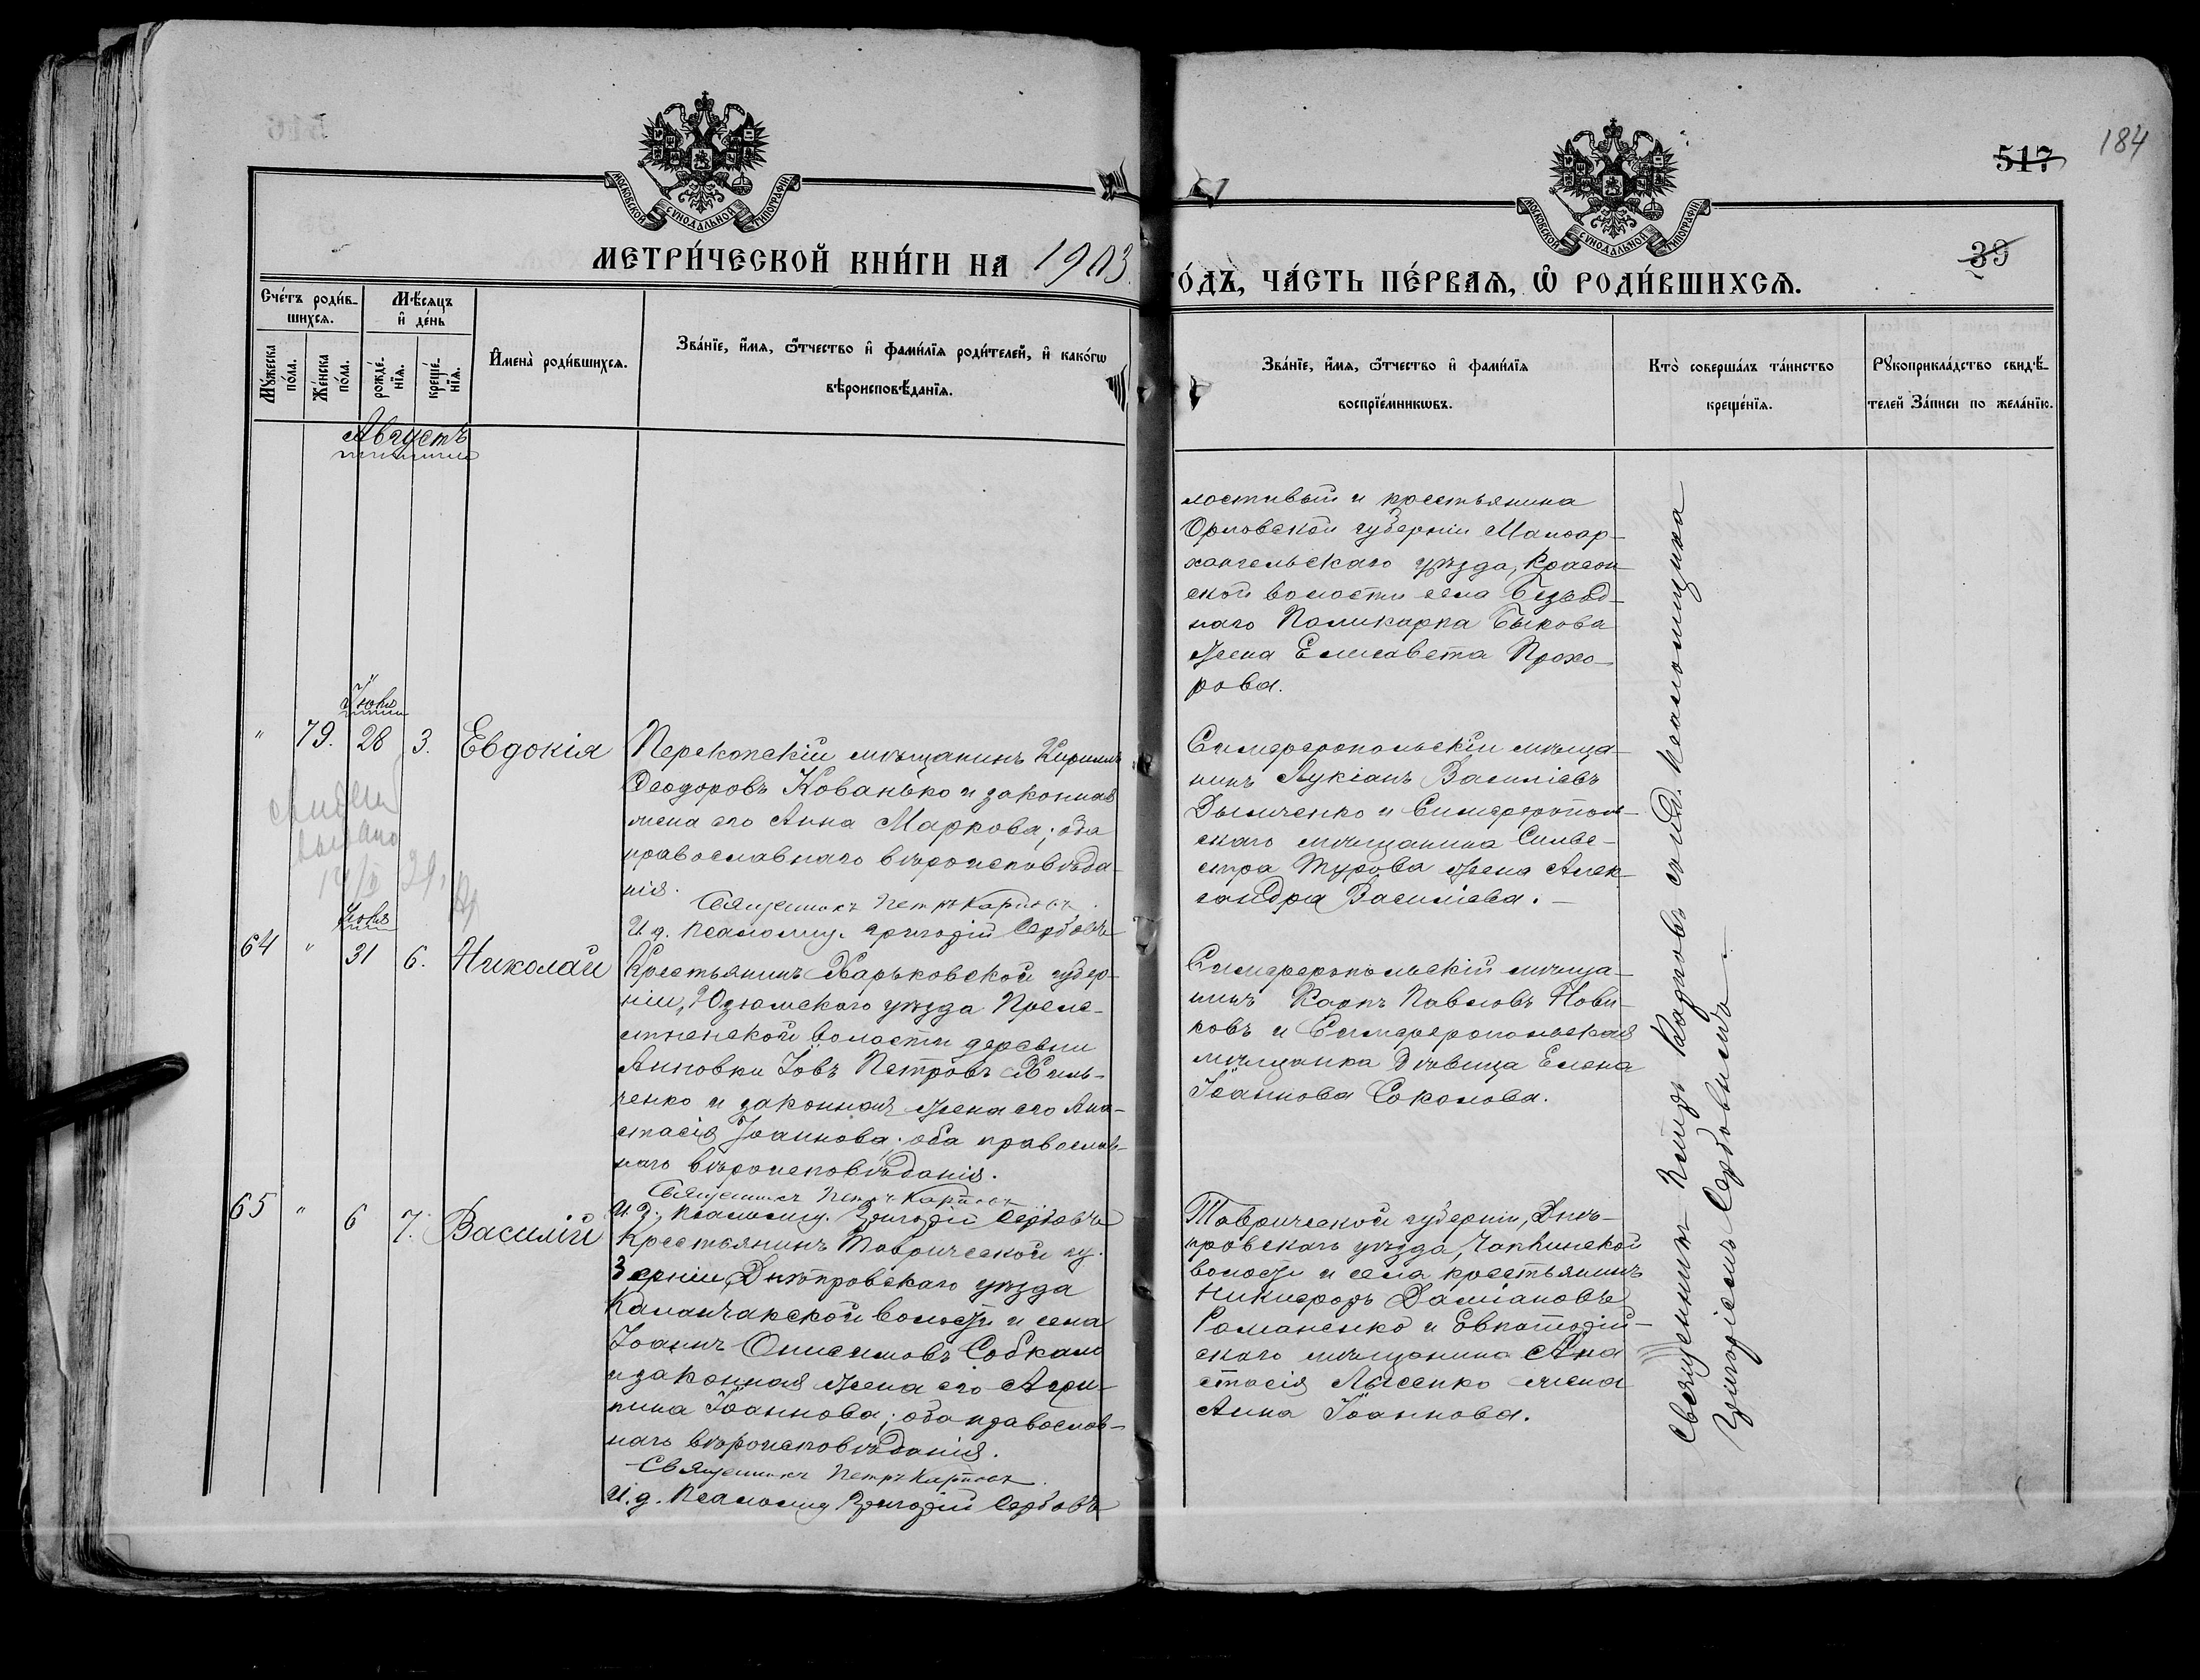 184
517
39
МОСКОВСКОЙ СѴНОДАЛЬНОЙ ТИПОГРАФІИ
МОСКОВСКОЙ СѴНОДАЛЬНОЙ ТИПОГРАФІИ
МЕТРИ́ЧЕСКОЙ КНИ́ГИ НА 1903.
ГО́ДЪ, ЧА́СТЬ ПЕ́РВАѦ, Ѿ РОДИ́ВШИХСѦ.
Сче́тъ роди́в-
шихсѧ.
Мѣ́сѧцъ
и҆ де́нь
Мꙋ́жеска по́ла.
Же́нска по́ла.
рожде́-
нїѧ.
креще́-
нїѧ.
И҆мена̀ роди́вшихсѧ.
Зва́нїе, и҆́мѧ, ѻ҆́тчество и҆ фами́лїѧ роди́телей, и҆ како́гѡ
вѣроисповѣ́данїѧ.
Зва́нїе, и҆́мѧ, ѻ҆́тчество и҆ фами́лїѧ
воспрїе́мникѡвъ.
Кто̀ соверша́лъ та́инство
креще́нїѧ.
Рꙋкоприкла́дство свидѣ́-
телей За́писи по жела́нїю.
Августъ
лостивый и крестьянина
Орловской губерніи Малоар-
хангельскаго уѣзда, Красен-
ской волости села
наго Поликарпа Быкова
жена Елисавета Прохо-
рова.
Іюля
" 79. 28 3. Евдокія
Перекопскій мѣщанинъ Кириллъ
Ѳеодоровъ Кованько и законная
жена его Анна Маркова; оба
православнаго вѣроисповѣда-
нія.
Священникъ Петръ Карповъ.
И. д. псаломщ. Григорій Сербовъ
выдано
Симферопольскій мѣща-
нинъ Лукіанъ Василіевъ
Дымченко и Симферополь-
скаго мѣщанина Сильве-
стра Турова жена Алек-
сандра Василіева. –
Іюля
64 " 31 6. Николай
Крестьянинъ Харьковской губер-
ніи, Изюмскаго уѣзда
волости деревни
Анновки Іовъ Петровъ Хиль-
ченко и законная жена его Ана-
стасія Іоаннова; оба православ-
наго вѣроисповѣданія.
Священникъ Петръ Карповъ
И. д. псаломщ. Григорій Сербовъ
Симферопольскій мѣща-
нинъ Карпъ Павловъ Нови-
ковъ и Симферопольская
мѣщанка дѣвица Елена
Іоаннова Соколова.
65 " 6 7. Василій
Крестьянинъ Таврической гу-
берніи, Днѣпровскаго уѣзда
Каланчакской волости и села
Іоаннъ Онисимовъ Собкало
и законная жена его Агри-
пина Іоаннова; оба православ-
наго вѣроисповѣданія.
Священникъ Петръ Карповъ.
И. д. Псаломщ Григорій Сербовъ
Таврической губерніи, Днѣ-
провскаго уѣзда, Чаплинской
волости и села крестьянинъ
Никифоръ Даміановъ
Романенко и Евпаторій-
скаго мѣщанина Ана
стасія Лысенко жена
Анна Іоаннова.
Священникъ Петръ Карповъ съ и. д. псаломщика
Григоріемъ Сербовымъ.